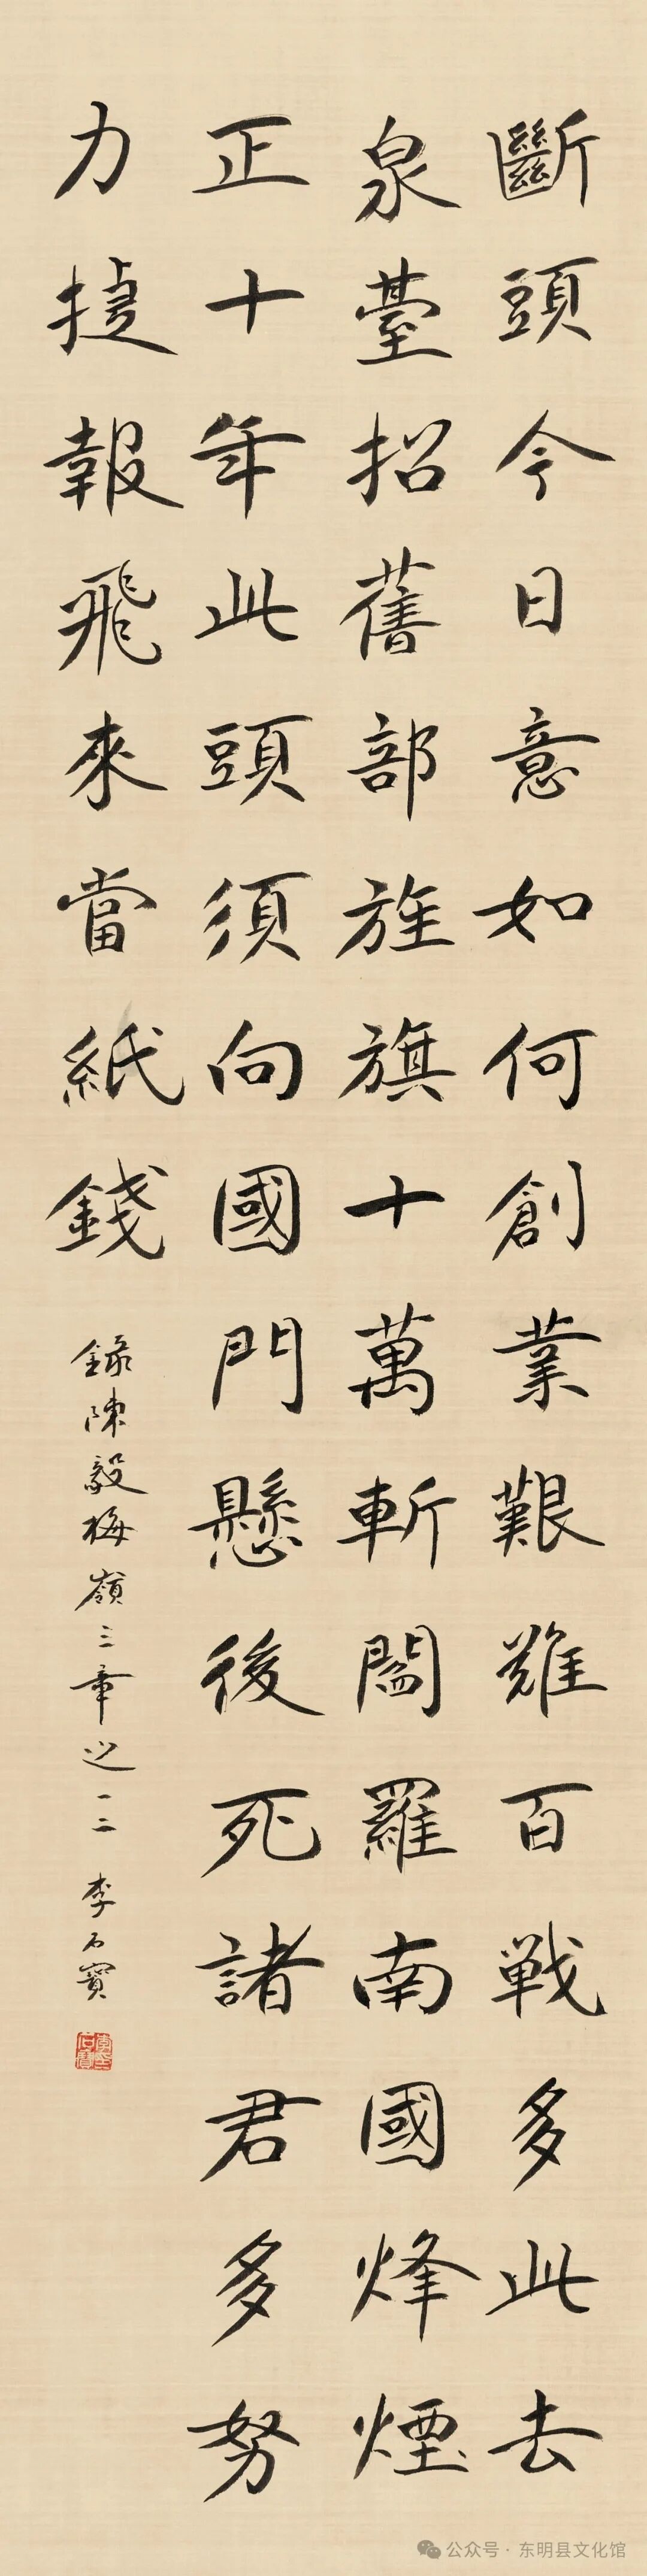 斷頭今日意如何創業艱難百戰多此去
泉臺招舊部旌旗十萬斬閻羅南國烽煙
正十年此頭須向國門懸後死諸君多努
力捷報飛來當紙錢
錄陳毅梅嶺三章之一二 李石寶
李石寶印
公众号·东明县文化馆